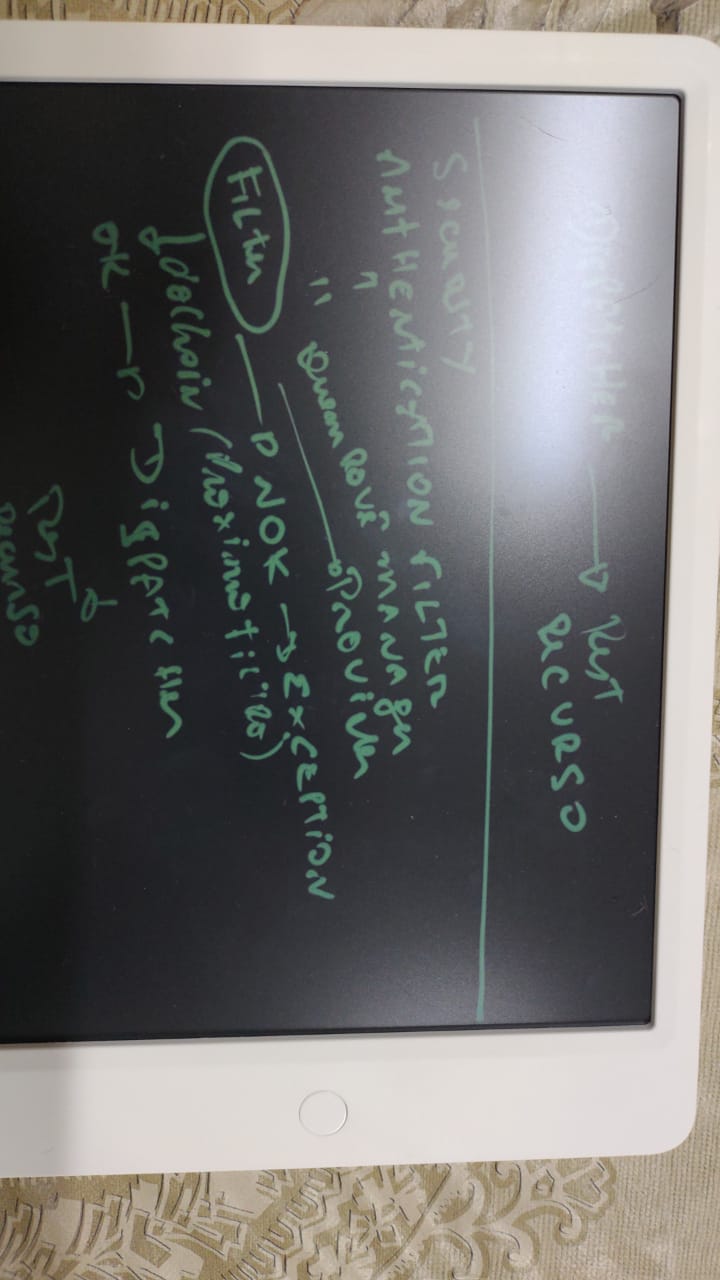 DISPATCHER → REST
RECURSO
SECURITY
AUTHENTICATION FILTER
" MANAGER
" → PROVIDER
FILTER → NOK → EXCEPTION
dochain (PROXIMO FILTRO)
OK → DISPATCHER
REST
RECURSO